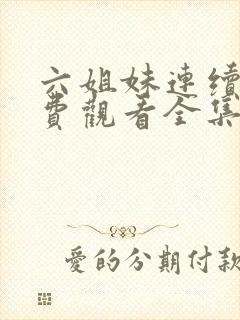 六姐妹連續
費觀看全集
愛的分期付款